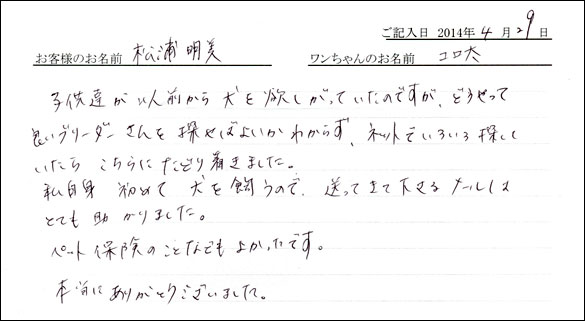 ご記入日 2014年 4 月 29 日
お客様のお名前 松浦 明美 ワンちゃんのお名前 コロ太
子供達が以前から犬を欲しがっていたのですが、どうやって
良いブリーダーさんを探せばよいかわからず、ネットでいろいろ探して
いたら こちらにたどり着きました。
私自身 初めて 犬を飼うので、送ってきて下さるメールは
とても助かりました。
ペット保険のことなどもよかったです。
本当にありがとうございました。